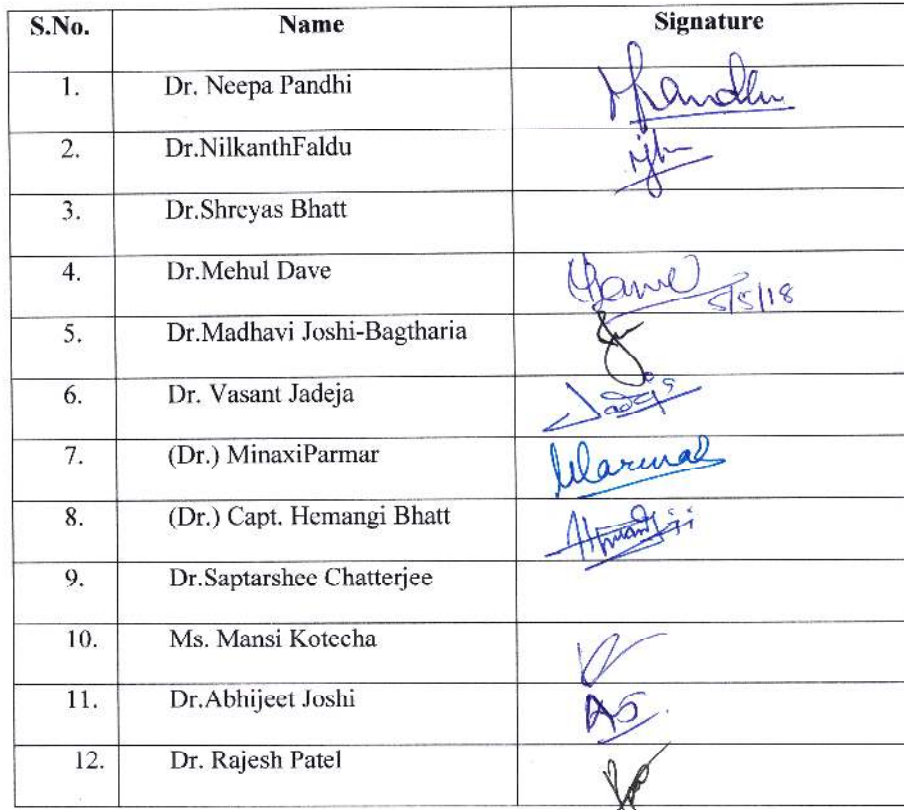 S.No. Name Signature
1. Dr. Neepa Pandhi
2. Dr.NilkanthFaldu
3. Dr.Shreyas Bhatt
4. Dr.Mehul Dave 5/5/18
5. Dr.Madhavi Joshi-Bagtharia
6. Dr. Vasant Jadeja
7. (Dr.) MinaxiParmar
8. (Dr.) Capt. Hemangi Bhatt
9. Dr.Saptarshee Chatterjee
10. Ms. Mansi Kotecha
11. Dr.Abhijeet Joshi AJ
12. Dr. Rajesh Patel